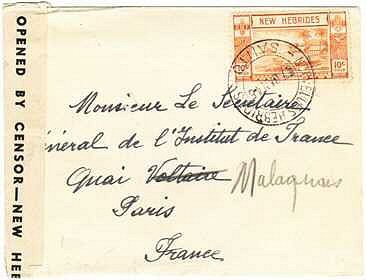 OPENED BY CENSOR—NEW HEB
NEW HEBRIDES
10c
Monsieur Le Secrétaire
Général de l'Institut de France
Quai Voltaire Malaquais
Paris
France